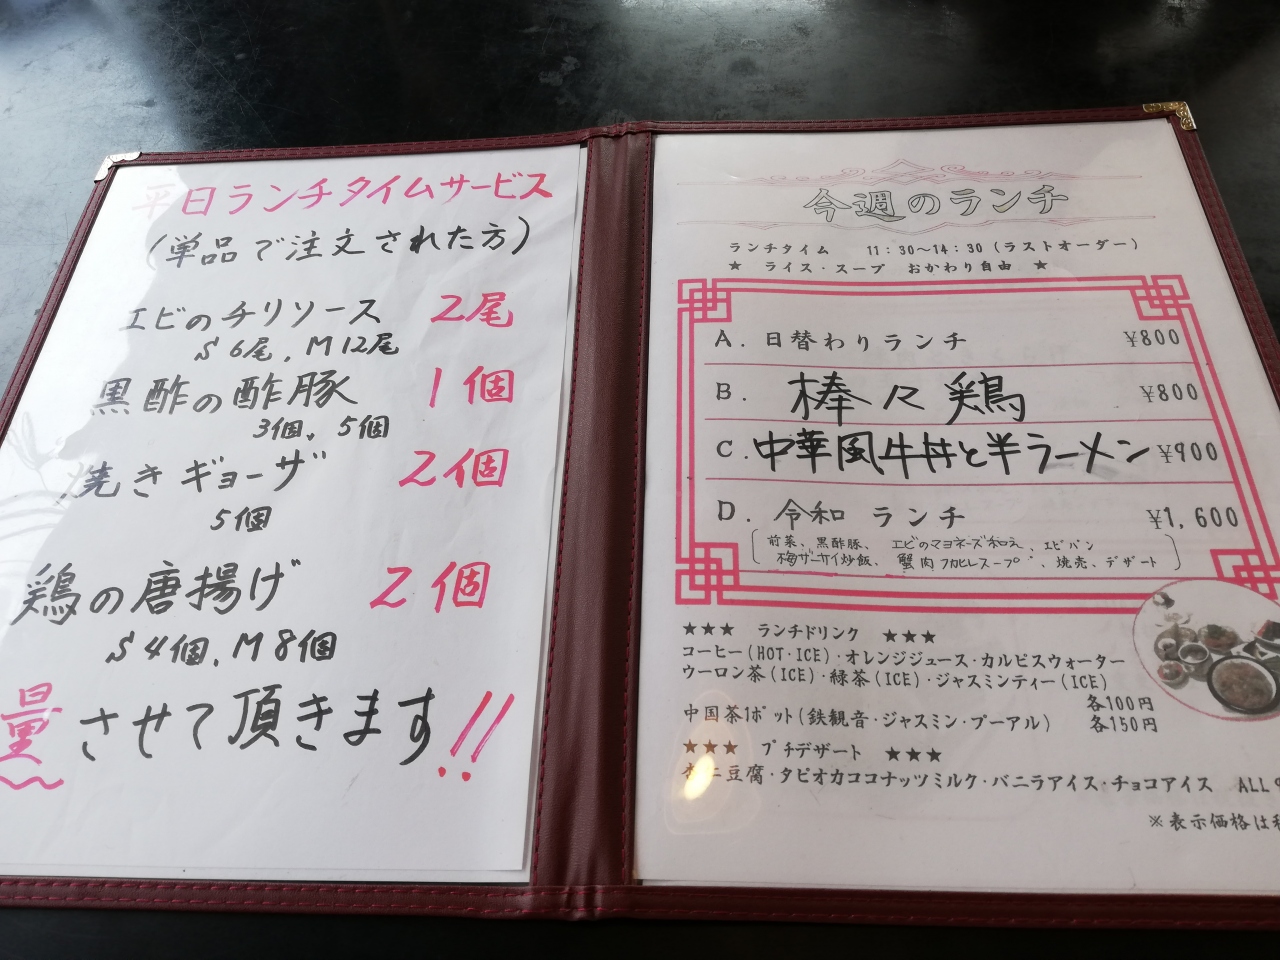 平日ランチタイムサービス
(単品で注文された方)
エビのチリソース 2尾
S 6尾, M 12尾
黒酢の酢豚 1個
3個, 5個
焼きギョーザ 2個
5個
鶏の唐揚げ 2個
S 4個, M 8個
量させて頂きます!!
今週のランチ
ランチタイム 11:30〜14:30(ラストオーダー)
★ ライス・スープ おかわり自由 ★
A. 日替わりランチ ¥800
B. 棒々鶏 ¥800
C. 中華風牛丼と半ラーメン ¥900
D. 令和 ランチ ¥1,600
前菜、黒酢豚、エビのマヨネーズ和え、エビパン
梅ザーサイ炒飯、蟹肉フカヒレスープ、焼売、デザート
★★★ ランチドリンク ★★★
コーヒー(HOT·ICE)・オレンジジュース・カルピスウォーター
ウーロン茶(ICE)・緑茶(ICE)・ジャスミンティー(ICE)
各100円
中国茶1ポット(鉄観音・ジャスミン・プーアル) 各150円
★★★ プチデザート ★★★
杏仁豆腐・タピオカココナッツミルク・バニラアイス・チョコアイス ALL
※表示価格は